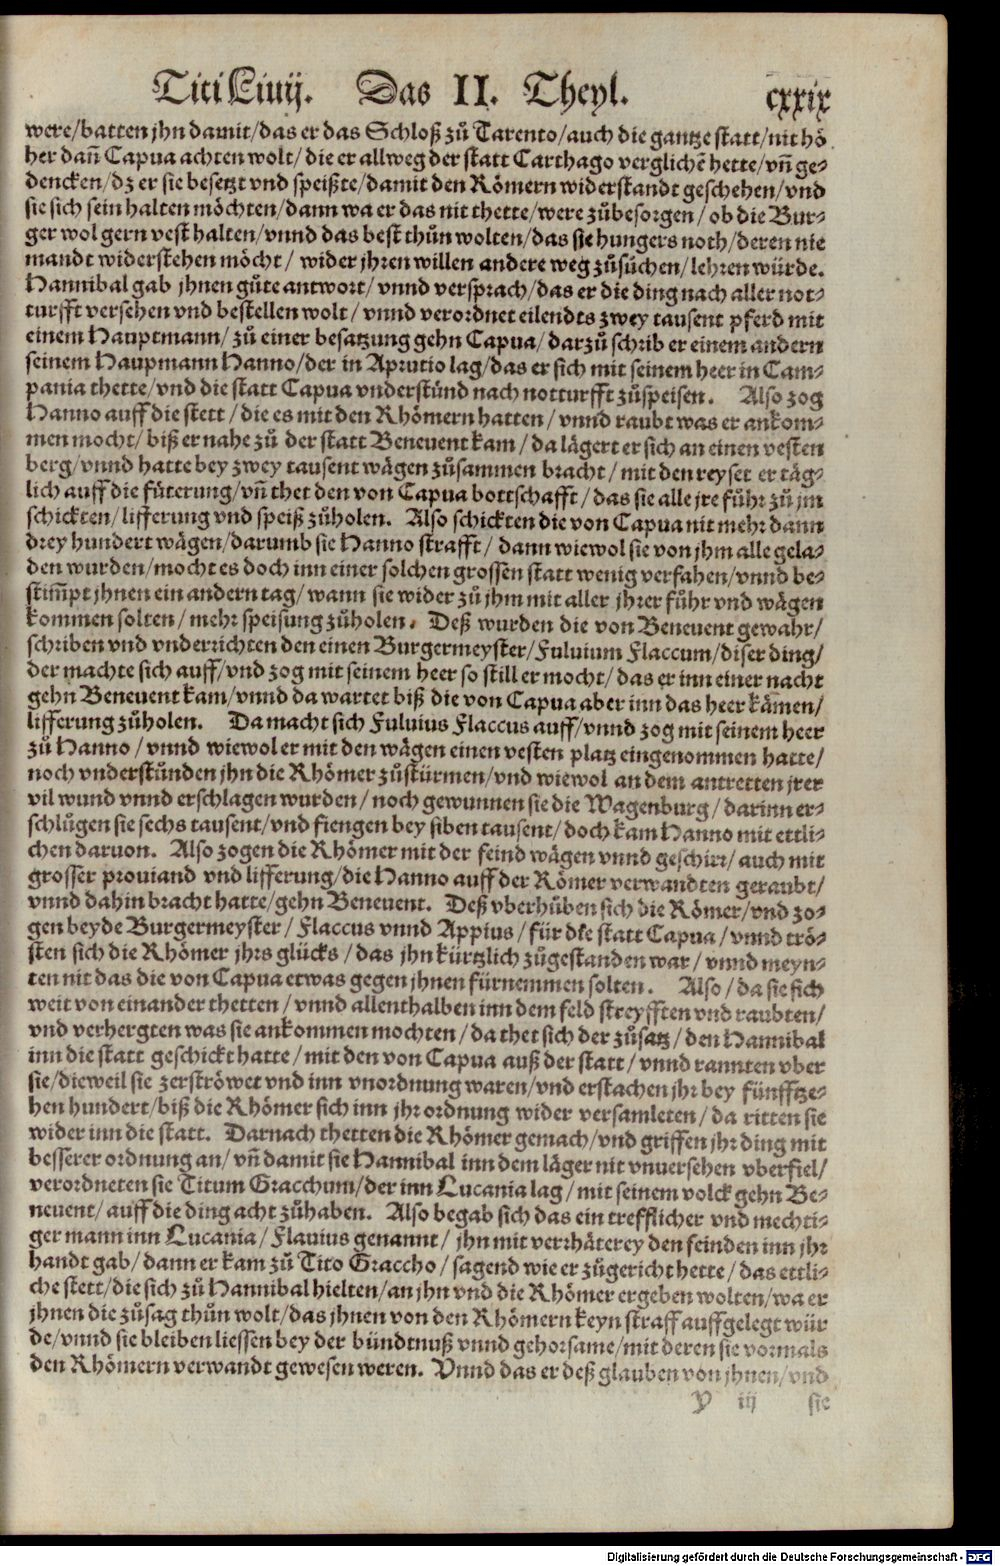 Titi Liuij. Das II. Theyl. cxxix
were/batten jhn damit/das er das Schloß zů Tarento/auch die gantze statt/nit hö
her dañ Capua achten wolt/die er allweg der statt Carthago verglichẽ hette/vñ ge-
dencken/dz er sie besetzt vnd speißte/damit den Römern widerstandt geschehen/vnd
sie sich sein halten möchten/dann wa er das nit thette/were zůbesorgen/ob die Bur-
ger wol gern vest halten/vnnd das best thůn wolten/das sie hungers noth/deren nie
mandt widerstehen möcht/ wider jhren willen andere weg zůsůchen/lehren würde.
Hannibal gab jhnen gůte antwort/ vnnd versprach/das er die ding nach aller not-
turfft versehen vnd bestellen wolt/ vnnd verordnet eilendts zwey tausent pferd mit
einem Hauptmann/zů einer besatzung gehn Capua/darzů schrib er einem andern
seinem Haupmann Hanno/der in Aprutio lag/das er sich mit seinem heer in Cam-
pania thette/vnd die statt Capua vnderstünd nach notturfft zůspeisen. Also zog
Hanno auff die stett/die es mit den Rhömern hatten/ vnnd raubt was er ankom-
men mocht/biß er nahe zů der statt Beneuent kam/da lägert er sich an einen vesten
berg/vnnd hatte bey zwey tausent wägen zůsammen bracht/mit den reyset er täg-
lich auff die fůterung/vñ thet den von Capua bottschafft/das sie alle jre fůhr zů jm
schickten/lifferung vnd speiß zůholen. Also schickten die von Capua nit mehr dann
drey hundert wägen/darumb sie Hanno strafft/ dann wiewol sie von jhm alle gela-
den wurden/mocht es doch inn einer solchen grossen statt wenig verfahen/vnnd be-
stim̃pt jhnen ein andern tag/wann sie wider zů jhm mit aller jhrer fůhr vnd wägen
kommen solten/mehr speisung zůholen. Deß wurden die von Beneuent gewahr/
schriben vnd vnderrichten den einen Burgermeyster/Fuluium Flaccum/diser ding/
der machte sich auff/vnd zog mit seinem heer so still er mocht/das er inn einer nacht
gehn Beneuent kam/vnnd da wartet biß die von Capua aber inn das heer kämen/
lifferung zůholen. Da macht sich Fuluius Flaccus auff/vnnd zog mit seinem heer
zů Hanno/vnnd wiewol er mit den wägen einen vesten platz eingenommen hatte/
noch vnderstůnden jhn die Rhömer zůstürmen/vnd wiewol an dem antretten jrer
vil wund vnnd erschlagen wurden/noch gewunnen sie die Wagenburg/darinn er-
schlůgen sie sechs tausent/vnd fiengen bey siben tausent/doch kam Hanno mit ettli-
chen daruon. Also zogen die Rhömer mit der feind wägen vnnd geschirr/auch mit
grosser prouiand vnd lifferung/die Hanno auff der Römer verwandten geraubt/
vnnd dahin bracht hatte/gehn Beneuent. Deß vberhůben sich die Römer/vnd zo-
gen beyde Burgermeyster/ Flaccus vnnd Appius/für dke statt Capua/vnnd trö-
sten sich die Rhömer jhrs glücks/das jhn kürtzlich zůgestanden war/vnnd meyn-
ten nit das die von Capua etwas gegen jhnen fürnemmen solten. Also/da sie sich
weit von einander thetten/vnnd allenthalben inn dem feld streyfften vnd raubten/
vnd verhergten was sie ankommen mochten/da thet sich der zůsatz/den Hannibal
inn die statt geschickt hatte/mit den von Capua auß der statt/vnnd rannten vber
sie/dieweil sie zerströwet vnd inn vnordnung waren/vnd erstachen jhr bey fünfftze-
hen hundert/biß die Rhömer sich inn jhr ordnung wider versamleten/da ritten sie
wider inn die statt. Darnach thetten die Rhömer gemach/vnd griffen jhr ding mit
besserer ordnung an/vñ damit sie Hannibal inn dem läger nit vnuersehen vberfiel/
verordneten sie Titum Gracchum/der inn Lucania lag/mit seinem volck gehn Be-
neuent/auff die ding acht zůhaben. Also begab sich das ein trefflicher vnd mechti-
ger mann inn Lucania/Flauius genannt/ jhn mit verrhäterey den feinden inn jhr
handt gab/dann er kam zů Tito Graccho/sagend wie er zůgericht hette/das ettli-
che stett/die sich zů Hannibal hielten/an jhn vnd die Rhömer ergeben wolten/wa er
jhnen die zůsag thůn wolt/das jhnen von den Rhömern keyn straff auffgelegt wür
de/vnnd sie bleiben liessen bey der bündtnuß vnnd gehorsame/mit deren sie vormals
den Rhömern verwandt gewesen weren. Vnnd das er deß glauben von jhnen/vnd
Y iij sie
Digitalisierung gefördert durch die Deutsche Forschungsgemeinschaft - DFG